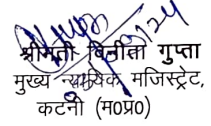 श्रीमती विनीता गुप्ता
मुख्य न्यायिक मजिस्ट्रेट,
कटनी (म०प्र०)